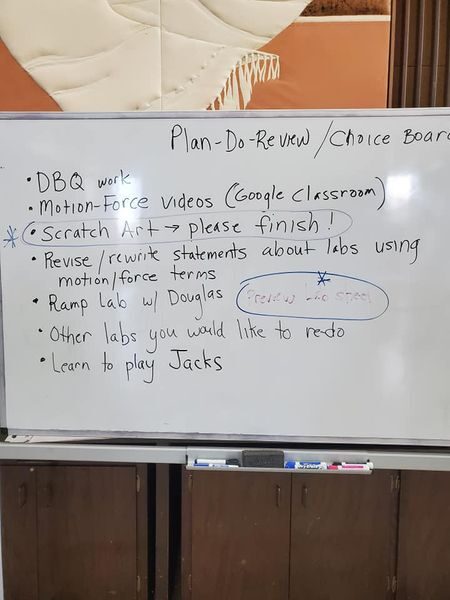 Plan-Do-Review/Choice Boar
• DBQ work
• Motion-Force videos (Google Classroom)
* • Scratch Art → please finish!
• Revise/rewrite statements about labs using
motion/force terms
*
• Ramp Lab w/ Douglas Preview
• Other labs you would like to re-do
• Learn to play Jacks